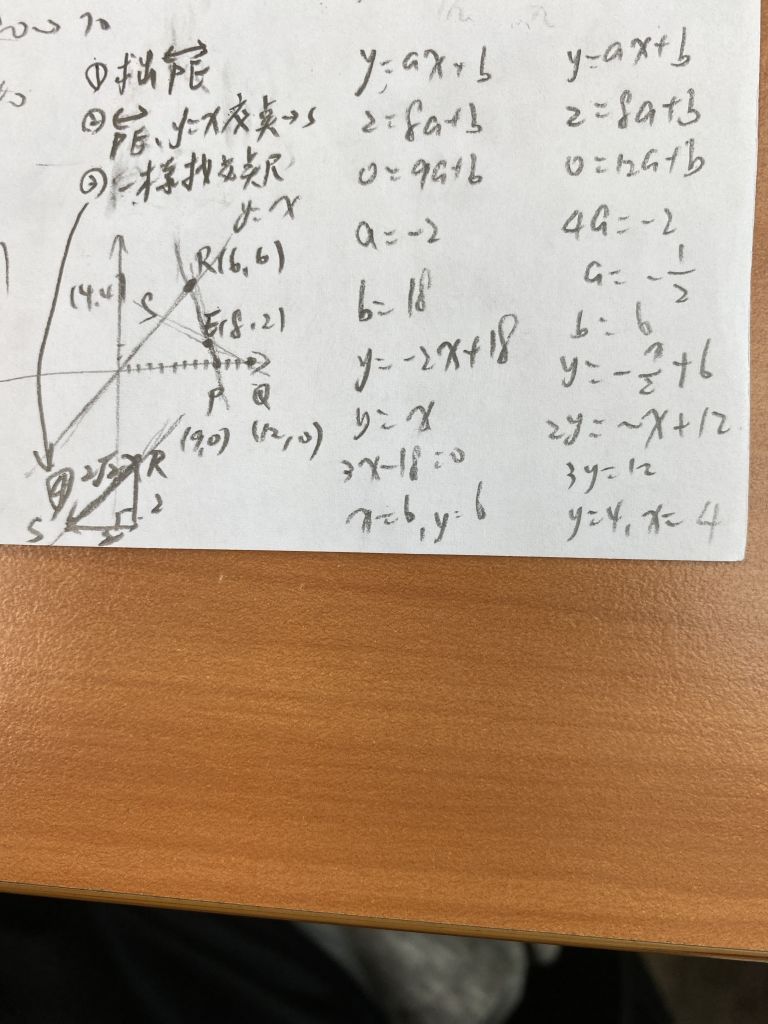 ①求出PE
②PE、y=x交点→S
③一樣找交点R
y=x
R(6,6)
(4,4)
S
E(8,2)
P
Q
(9,0)
(12,0)
④
2√2
R
2
S
2
y=ax+b
2=8a+b
0=9a+b
a=-2
b=18
y=-2x+18
y=x
3x-18=0
x=6,y=6
y=ax+b
2=8a+b
0=12a+b
4a=-2
a=-1/2
b=6
y=-x/2+6
2y=-x+12
3y=12
y=4,x=4